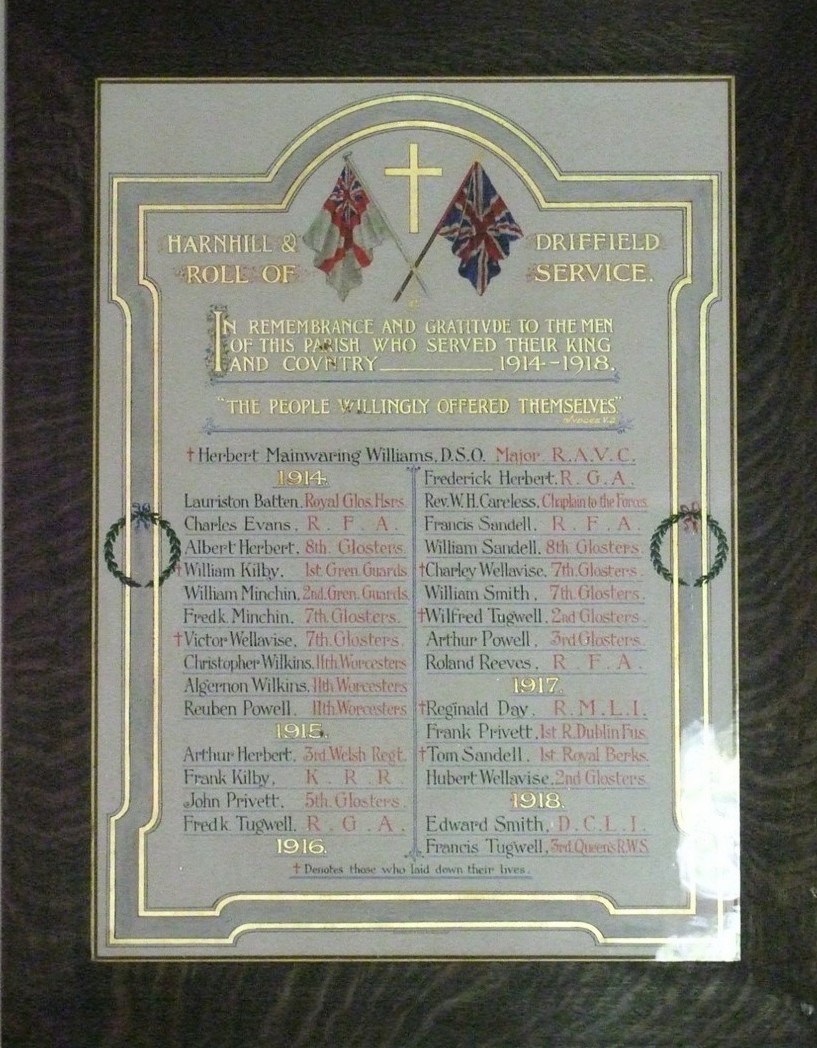 HARNHILL & DRIFFIELD
ROLL OF SERVICE.
IN REMEMBRANCE AND GRATITVDE TO THE MEN
OF THIS PARISH WHO SERVED THEIR KING
AND COVNTRY 1914--1918.
"THE PEOPLE WILLINGLY OFFERED THEMSELVES"
†Herbert Mainwaring Williams, D.S.O. Major R.A.V.C.
1914.
Lauriston Batten. Royal Glos. Hsrs.
Charles Evans, R. F. A.
Albert Herbert, 8th. Glosters.
†William Kilby, 1st. Gren. Guards
William Minchin, 2nd. Gren. Guards.
Fredk. Minchin, 7th. Glosters.
†Victor Wellavise, 7th. Glosters.
Christopher Wilkins. 11th. Worcesters
Algernon Wilkins. 11th. Worcesters
Reuben Powell. 11th. Worcesters
1915.
Arthur Herbert. 3rd. Welsh Regt.
Frank Kilby, K. R. R.
John Privett, 5th. Glosters.
Fredk Tugwell. R. G. A.
1916.
Frederick Herbert, R. G. A.
Rev. W. H. Careless, Chaplain to the Forces.
Francis Sandell, R. F. A.
William Sandell, 8th Glosters.
†Charley Wellavise. 7th. Glosters.
William Smith, 7th. Glosters.
†Wilfred Tugwell, 2nd Glosters.
Arthur Powell, 3rd Glosters.
Roland Reeves, R. F. A.
1917.
†Reginald Day, R. M. L. I.
Frank Privett, 1st R. Dublin Fus.
†Tom Sandell, 1st. Royal Berks.
Hubert Wellavise, 2nd Glosters.
1918.
Edward Smith, D. C. L. I.
Francis Tugwell, 3rd. Queen's R.W.S.
† Denotes those who laid down their lives.